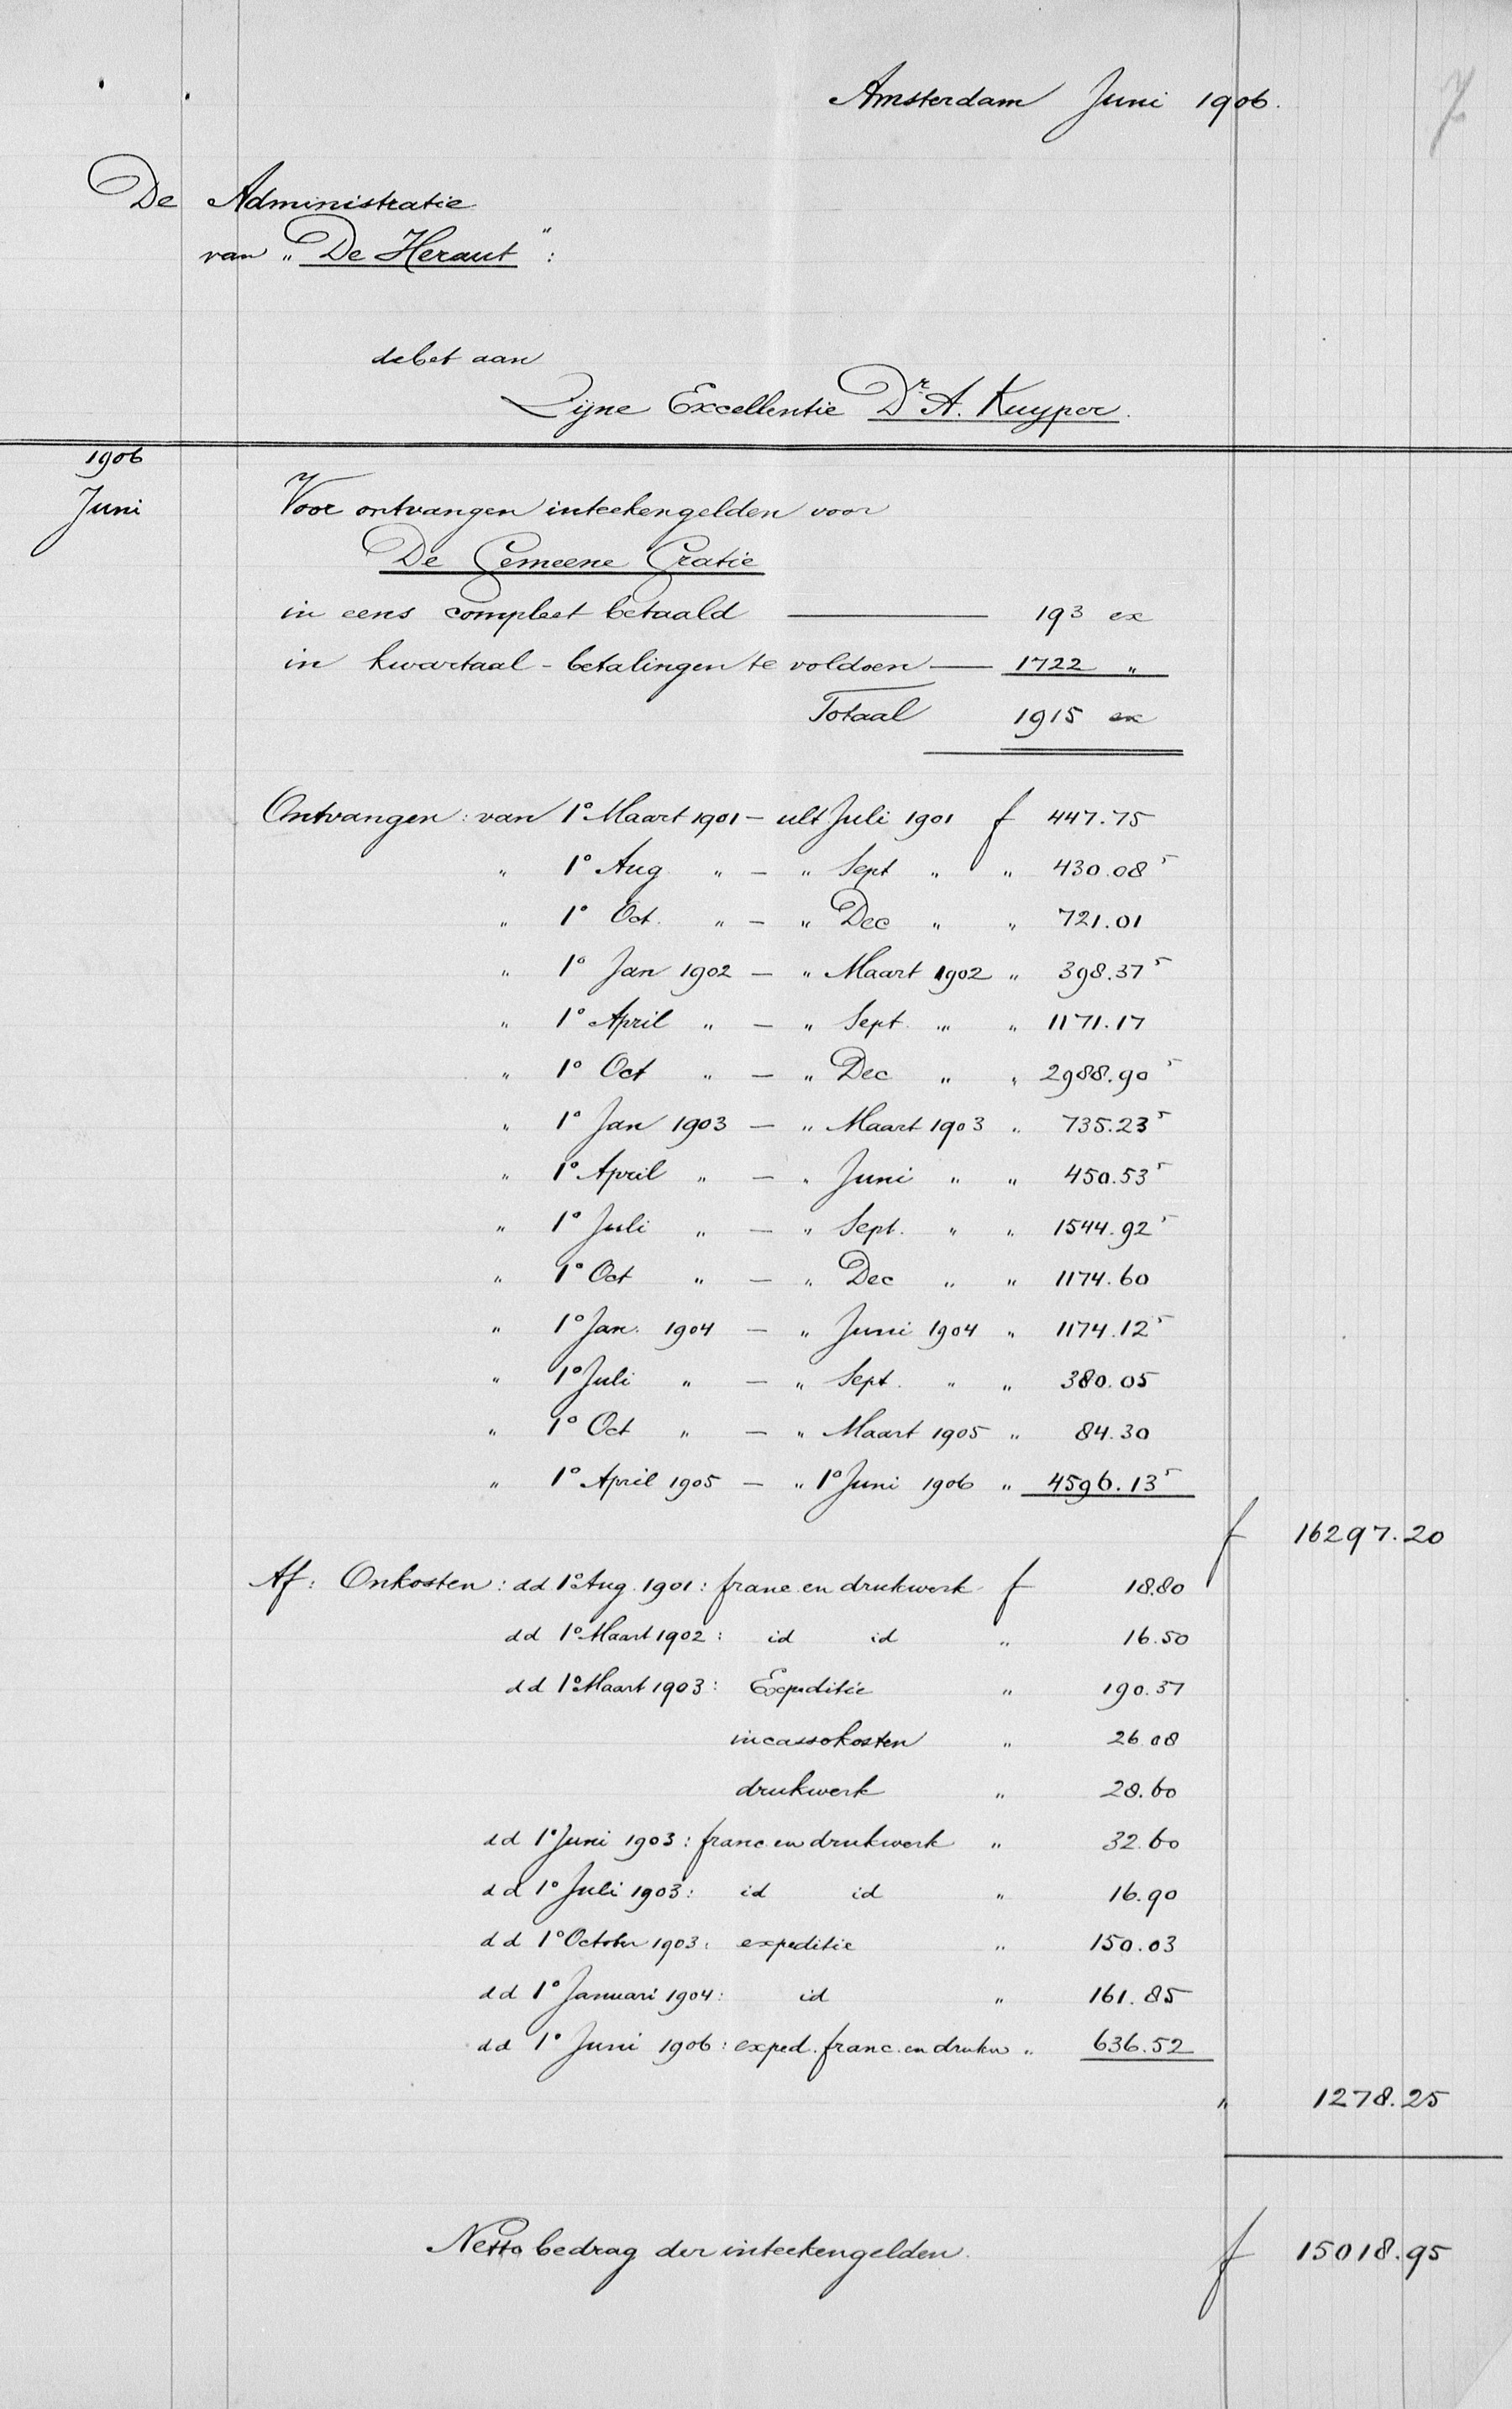 Amsterdam Juni 1906.
7
De Administratie
van „De Heraut":
debet aan
Zijne Excellentie Dr A. Kuyper.
1906
Juni
Voor ontvangen inteekengelden voor
De Gemeene Gratie
in eens compleet betaald — 193 ex
in kwartaal-betalingen te voldoen — 1722 "
Totaal 1915 ex
Ontvangen: van 1° Maart 1901 — ult Juli 1901 f 447.75
" 1° Aug. " — " Sept " " 430.08⁵
" 1° Oct. " — " Dec " " 721.01
" 1° Jan 1902 — " Maart 1902 " 398.37⁵
" 1° April " — " Sept. " " 1171.17
" 1° Oct " — " Dec " " 2988.90⁵
" 1° Jan 1903 — " Maart 1903 " 735.23⁵
" 1° April " — " Juni " " 450.53⁵
" 1° Juli " — " Sept. " " 1544.92⁵
" 1° Oct " — " Dec " " 1174.60
" 1° Jan. 1904 — " Juni 1904 " 1174.12⁵
" 1° Juli " — " Sept. " " 380.05
" 1° Oct " — " Maart 1905 " 84.30
" 1° April 1905 — " 1° Juni 1906 " 4596.13⁵
f 16297.20
Af: Onkosten: dd 1° Aug. 1901: franc. en drukwerk f 18.80
dd 1° Maart 1902: id id " 16.50
dd 1° Maart 1903: Expeditie " 190.37
incassokosten " 26.08
drukwerk " 28.60
dd 1° Juni 1903: franc. en drukwerk " 32.60
dd 1° Juli 1903: id id " 16.90
dd 1° October 1903: expeditie " 150.03
dd 1° Januari 1904: id " 161.85
dd 1° Juni 1906: exped. franc. en drukw " 636.52
" 1278.25
Netto bedrag der inteekengelden. f 15018.95